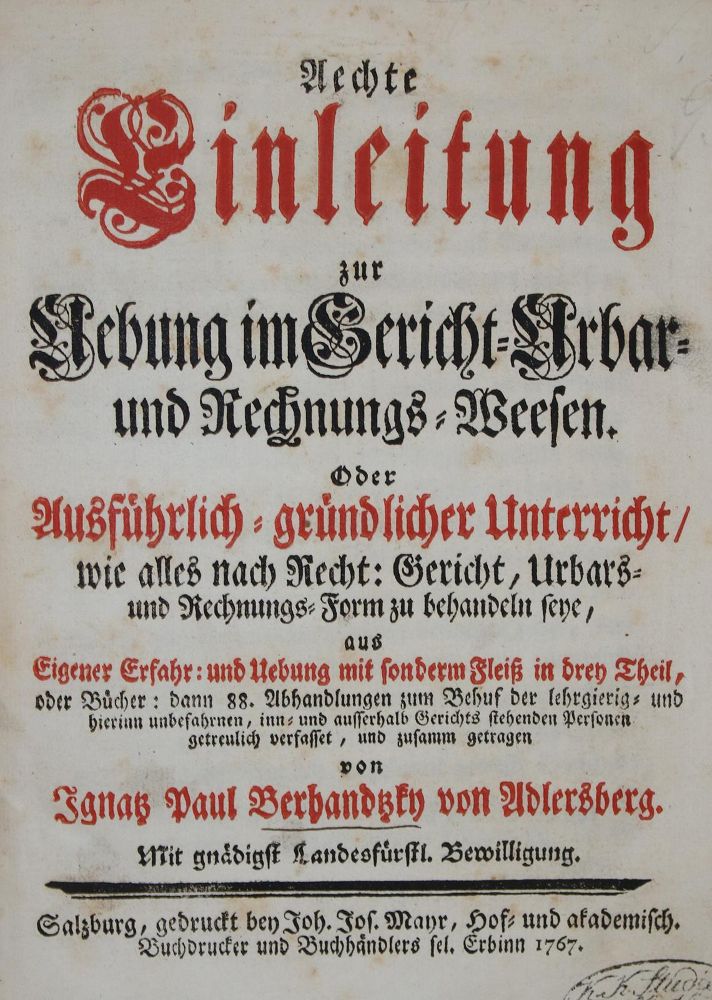 Aechte
Einleitung
zur
Uebung im Gericht-Urbar-
und Rechnungs-Weesen.
Oder
Ausführlich-gründlicher Unterricht/
wie alles nach Recht: Gericht, Urbars-
und Rechnungs-Form zu behandeln seye,
aus
Eigener Erfahr: und Uebung mit sonderm Fleiß in drey Theil,
oder Bücher: dann 88. Abhandlungen zum Behuf der lehrgierig- und
hierinn unbefahrnen, inn- und ausserhalb Gerichts stehenden Personen
getreulich verfasset, und zusamm getragen
von
Ignatz Paul Berhandtzky von Adlersberg.
Mit gnädigst Landesfürstl. Bewilligung.
Salzburg, gedruckt bey Joh. Jos. Mayr, Hof- und akademisch.
Buchdrucker und Buchhändlers sel. Erbinn 1767.
K. K. Studi